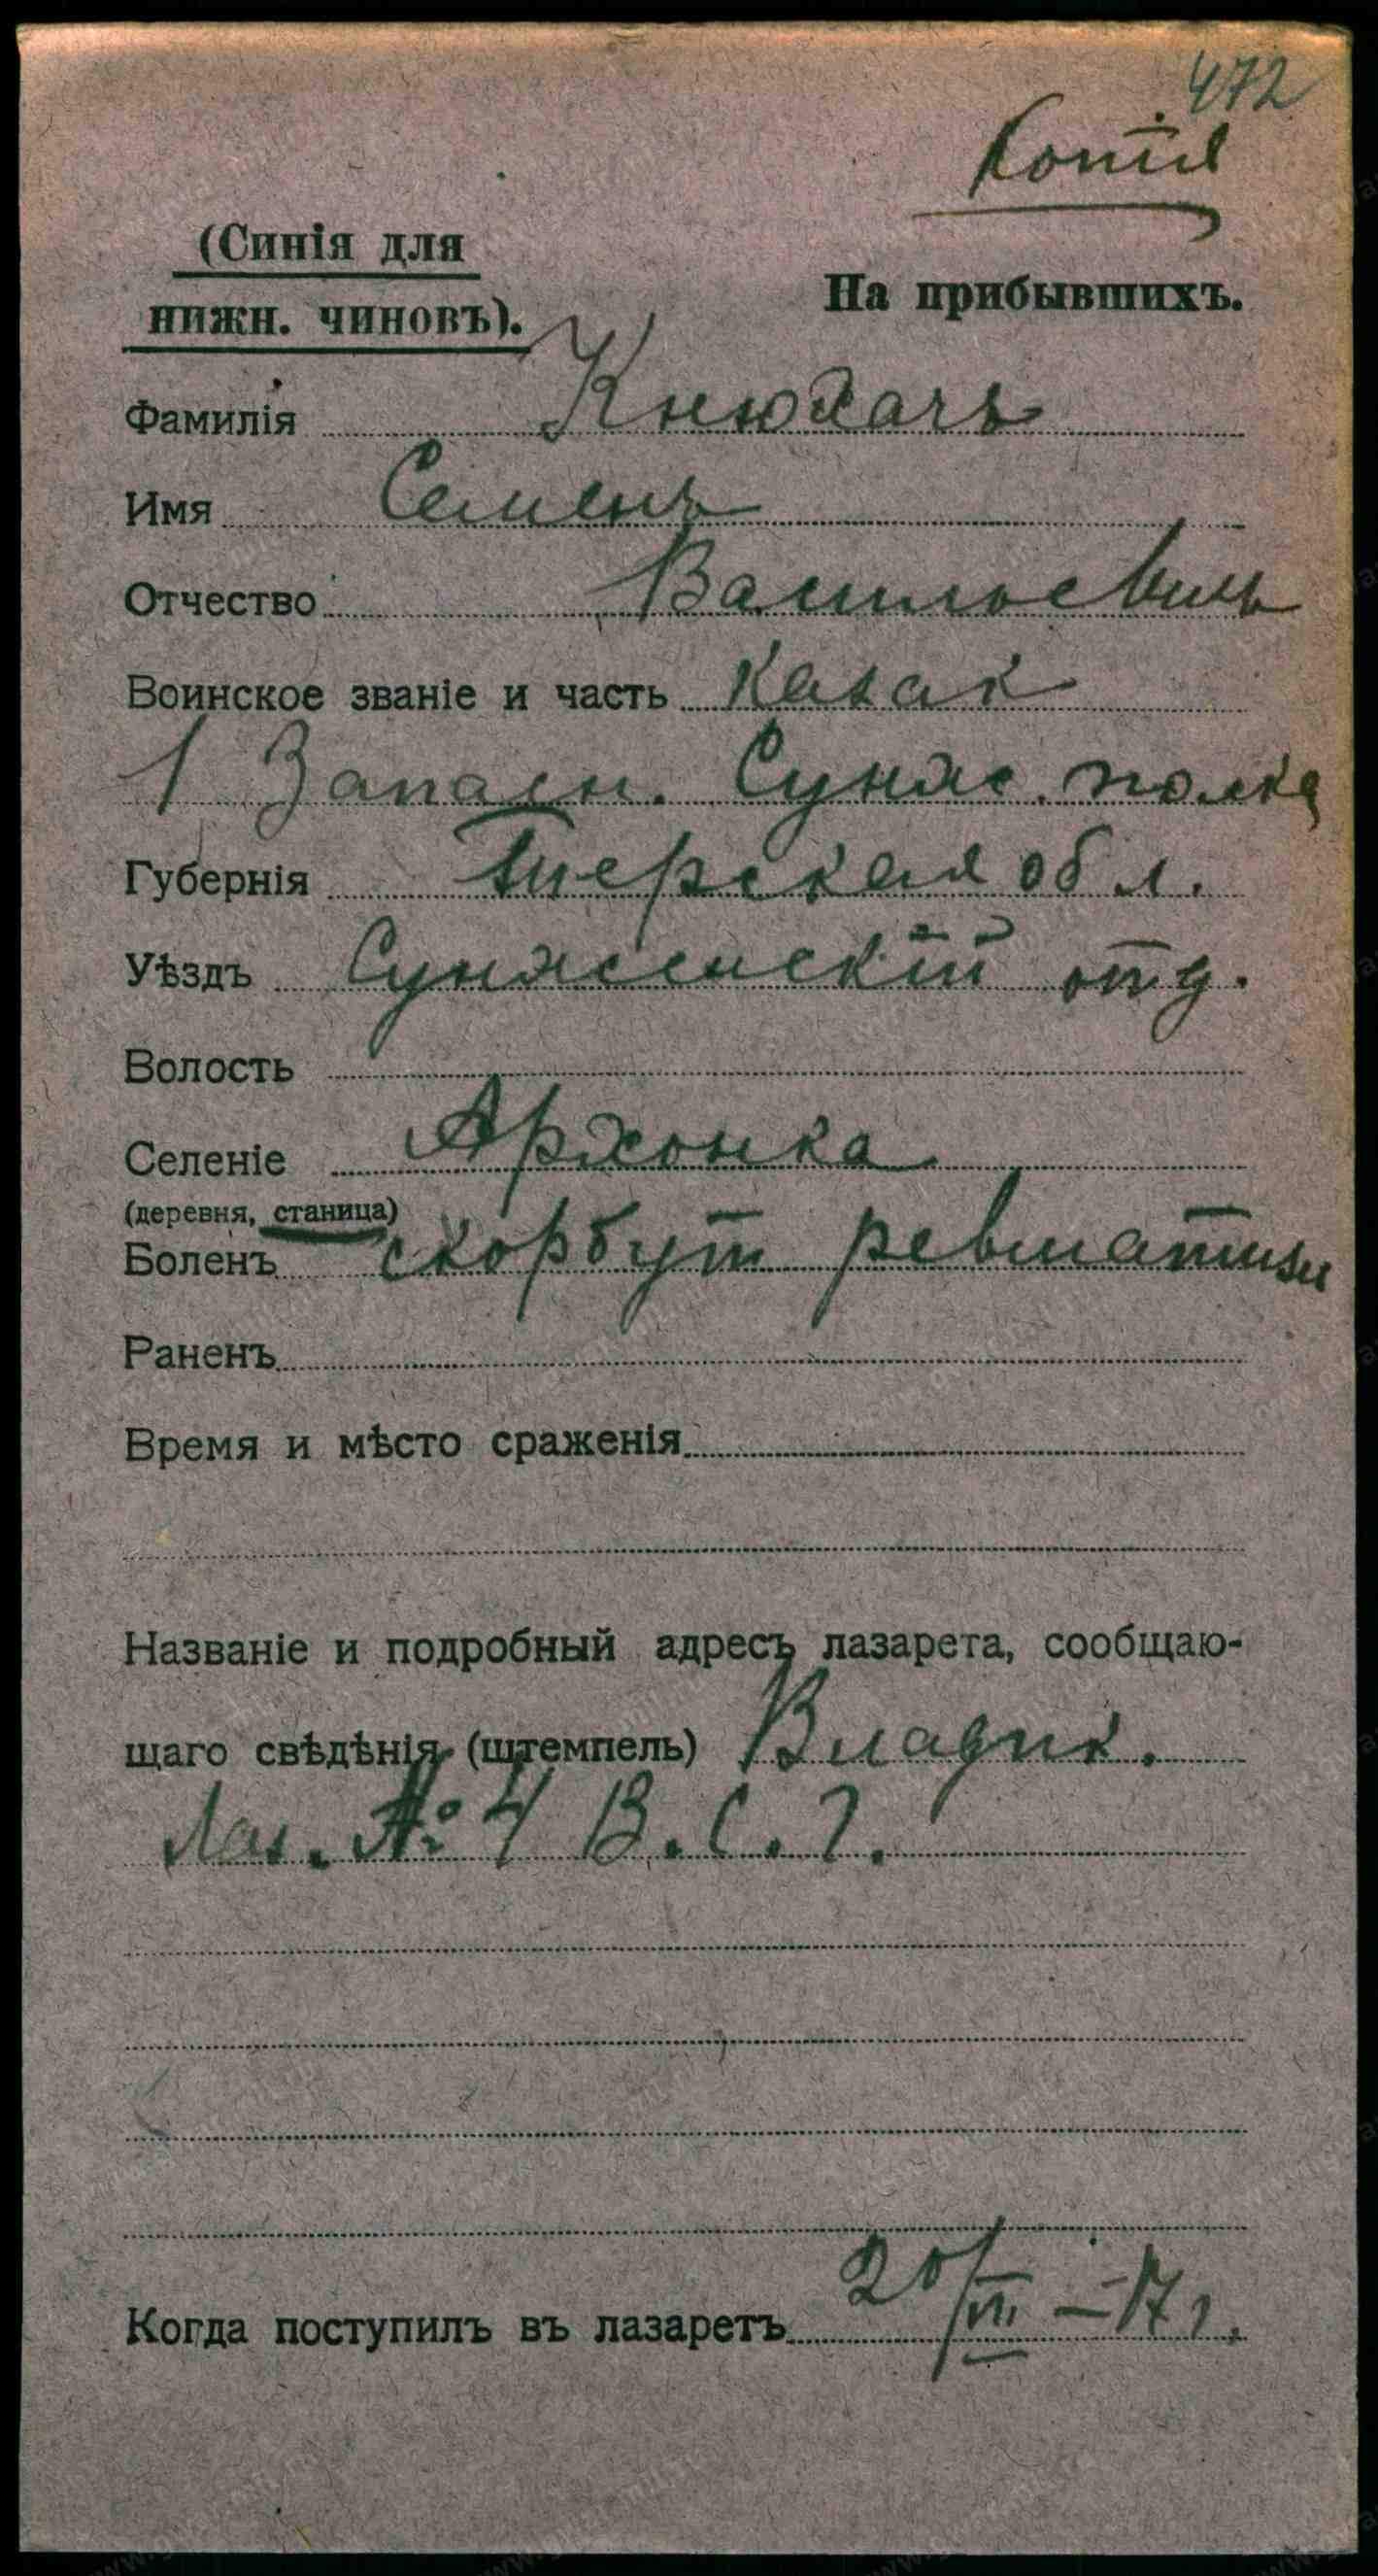 472
Копія
(Синія для
нижн. чиновъ).
На прибывшихъ.
Фамилія Кнюхачъ
Имя Семенъ
Отчество Васильевичъ
Воинское званіе и часть казак
1 Запасн. Сунж. полка
Губернія Терская обл.
Уѣздъ Сунженскій отд.
Волость
Селеніе Архонка
(деревня, станица)
Боленъ скорбут ревматизм
Раненъ
Время и мѣсто сраженія
Названіе и подробный адресъ лазарета, сообщаю-
щаго свѣдѣнія (штемпель) Владик.
Лаз. № 4 В. С. Г.
Когда поступилъ въ лазаретъ 20/VII – 17 г.